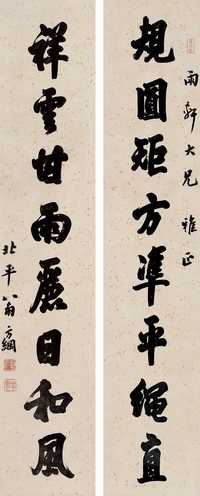 雨軒大兄雅正
規圓矩方準平繩直
祥雲甘雨麗日和風
北平翁方綱